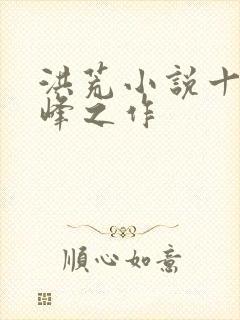 洪荒小説十
峰之作
順心如意